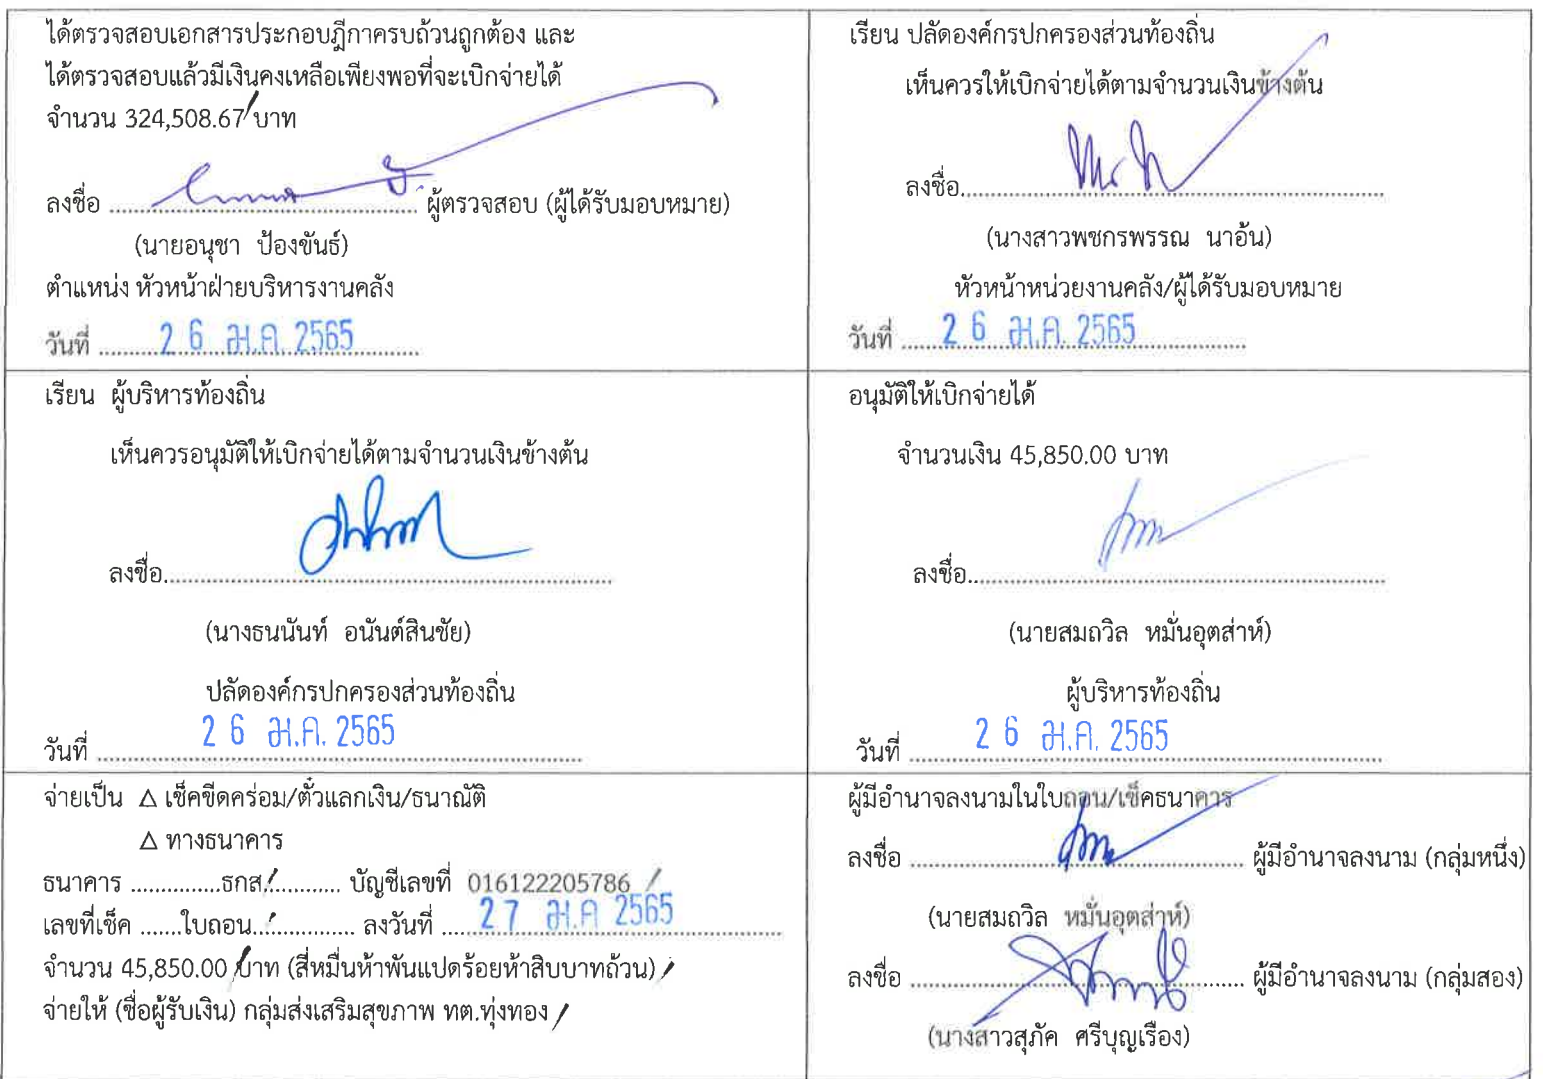 ได้ตรวจสอบเอกสารประกอบฎีกาครบถ้วนถูกต้อง และ
ได้ตรวจสอบแล้วมีเงินคงเหลือเพียงพอที่จะเบิกจ่ายได้
จำนวน 324,508.67 บาท
ลงชื่อ ........................................ ผู้ตรวจสอบ (ผู้ได้รับมอบหมาย)
(นายอนุชา ป้องขันธ์)
ตำแหน่ง หัวหน้าฝ่ายบริหารงานคลัง
วันที่ 26 ม.ค. 2565
เรียน ปลัดองค์กรปกครองส่วนท้องถิ่น
เห็นควรให้เบิกจ่ายได้ตามจำนวนเงินข้างต้น
ลงชื่อ........................................
(นางสาวพชกรพรรณ นาอ้น)
หัวหน้าหน่วยงานคลัง/ผู้ได้รับมอบหมาย
วันที่ 26 ม.ค. 2565
เรียน ผู้บริหารท้องถิ่น
เห็นควรอนุมัติให้เบิกจ่ายได้ตามจำนวนเงินข้างต้น
ลงชื่อ........................................
(นางธนนันท์ อนันต์สินชัย)
ปลัดองค์กรปกครองส่วนท้องถิ่น
วันที่ 26 ม.ค. 2565
อนุมัติให้เบิกจ่ายได้
จำนวนเงิน 45,850.00 บาท
ลงชื่อ........................................
(นายสมถวิล หมั่นอุตส่าห์)
ผู้บริหารท้องถิ่น
วันที่ 26 ม.ค. 2565
จ่ายเป็น △ เช็คขีดคร่อม/ตั๋วแลกเงิน/ธนาณัติ
△ ทางธนาคาร
ธนาคาร ..............ธกส............. บัญชีเลขที่ 016122205786 /
เลขที่เช็ค .......ใบถอน................ ลงวันที่ 27 ม.ค 2565
จำนวน 45,850.00 บาท (สี่หมื่นห้าพันแปดร้อยห้าสิบบาทถ้วน) /
จ่ายให้ (ชื่อผู้รับเงิน) กลุ่มส่งเสริมสุขภาพ ทต.ทุ่งทอง /
ผู้มีอำนาจลงนามในใบถอน/เช็คธนาคาร
ลงชื่อ ........................................ ผู้มีอำนาจลงนาม (กลุ่มหนึ่ง)
(นายสมถวิล หมั่นอุตส่าห์)
ลงชื่อ ........................................ ผู้มีอำนาจลงนาม (กลุ่มสอง)
(นางสาวสุภัค ศรีบุญเรือง)